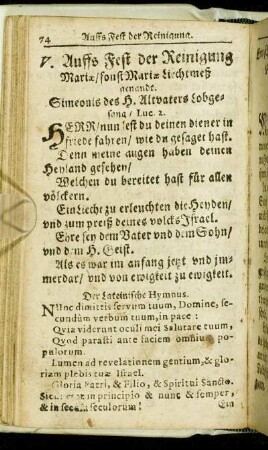 74 Auffs Fest der Reinigung.
V. Auffs Fest der Reinigung
Mariæ/ sonst Mariæ Liechtmeß
genandt.
Simeonis des H. Altvaters Lobge-
sang/ Luc. 2.
HERR/ nun lest du deinen diener in
friede fahren/ wie du gesaget hast.
Denn meine augen haben deinen
Heyland gesehen/
Welchen du bereitet hast für allen
völckern.
Ein Liecht zu erleuchten die Heyden/
vnd zum preiß deines volcks Israel.
Ehre sey dem Vater vnd dem Sohn/
vnd dem H. Geist.
Als es war im anfang jetzt vnd im-
merdar/ vnd von ewigkeit zu ewigkeit.
Der Lateinische Hymnus.
NUnc dimittis servum tuum, Domine, se-
cundùm verbum tuum, in pace:
Qvia viderunt oculi mei Salutare tuum,
Qvod parasti ante faciem omnium po-
pulorum.
Lumen ad revelationem gentium, & glo-
riam plebis tuæ Israel.
Gloria Patri, & Filio, & Spiritui Sancto.
Sicut erat in principio & nunc & semper,
& in secula seculorum!
Ein